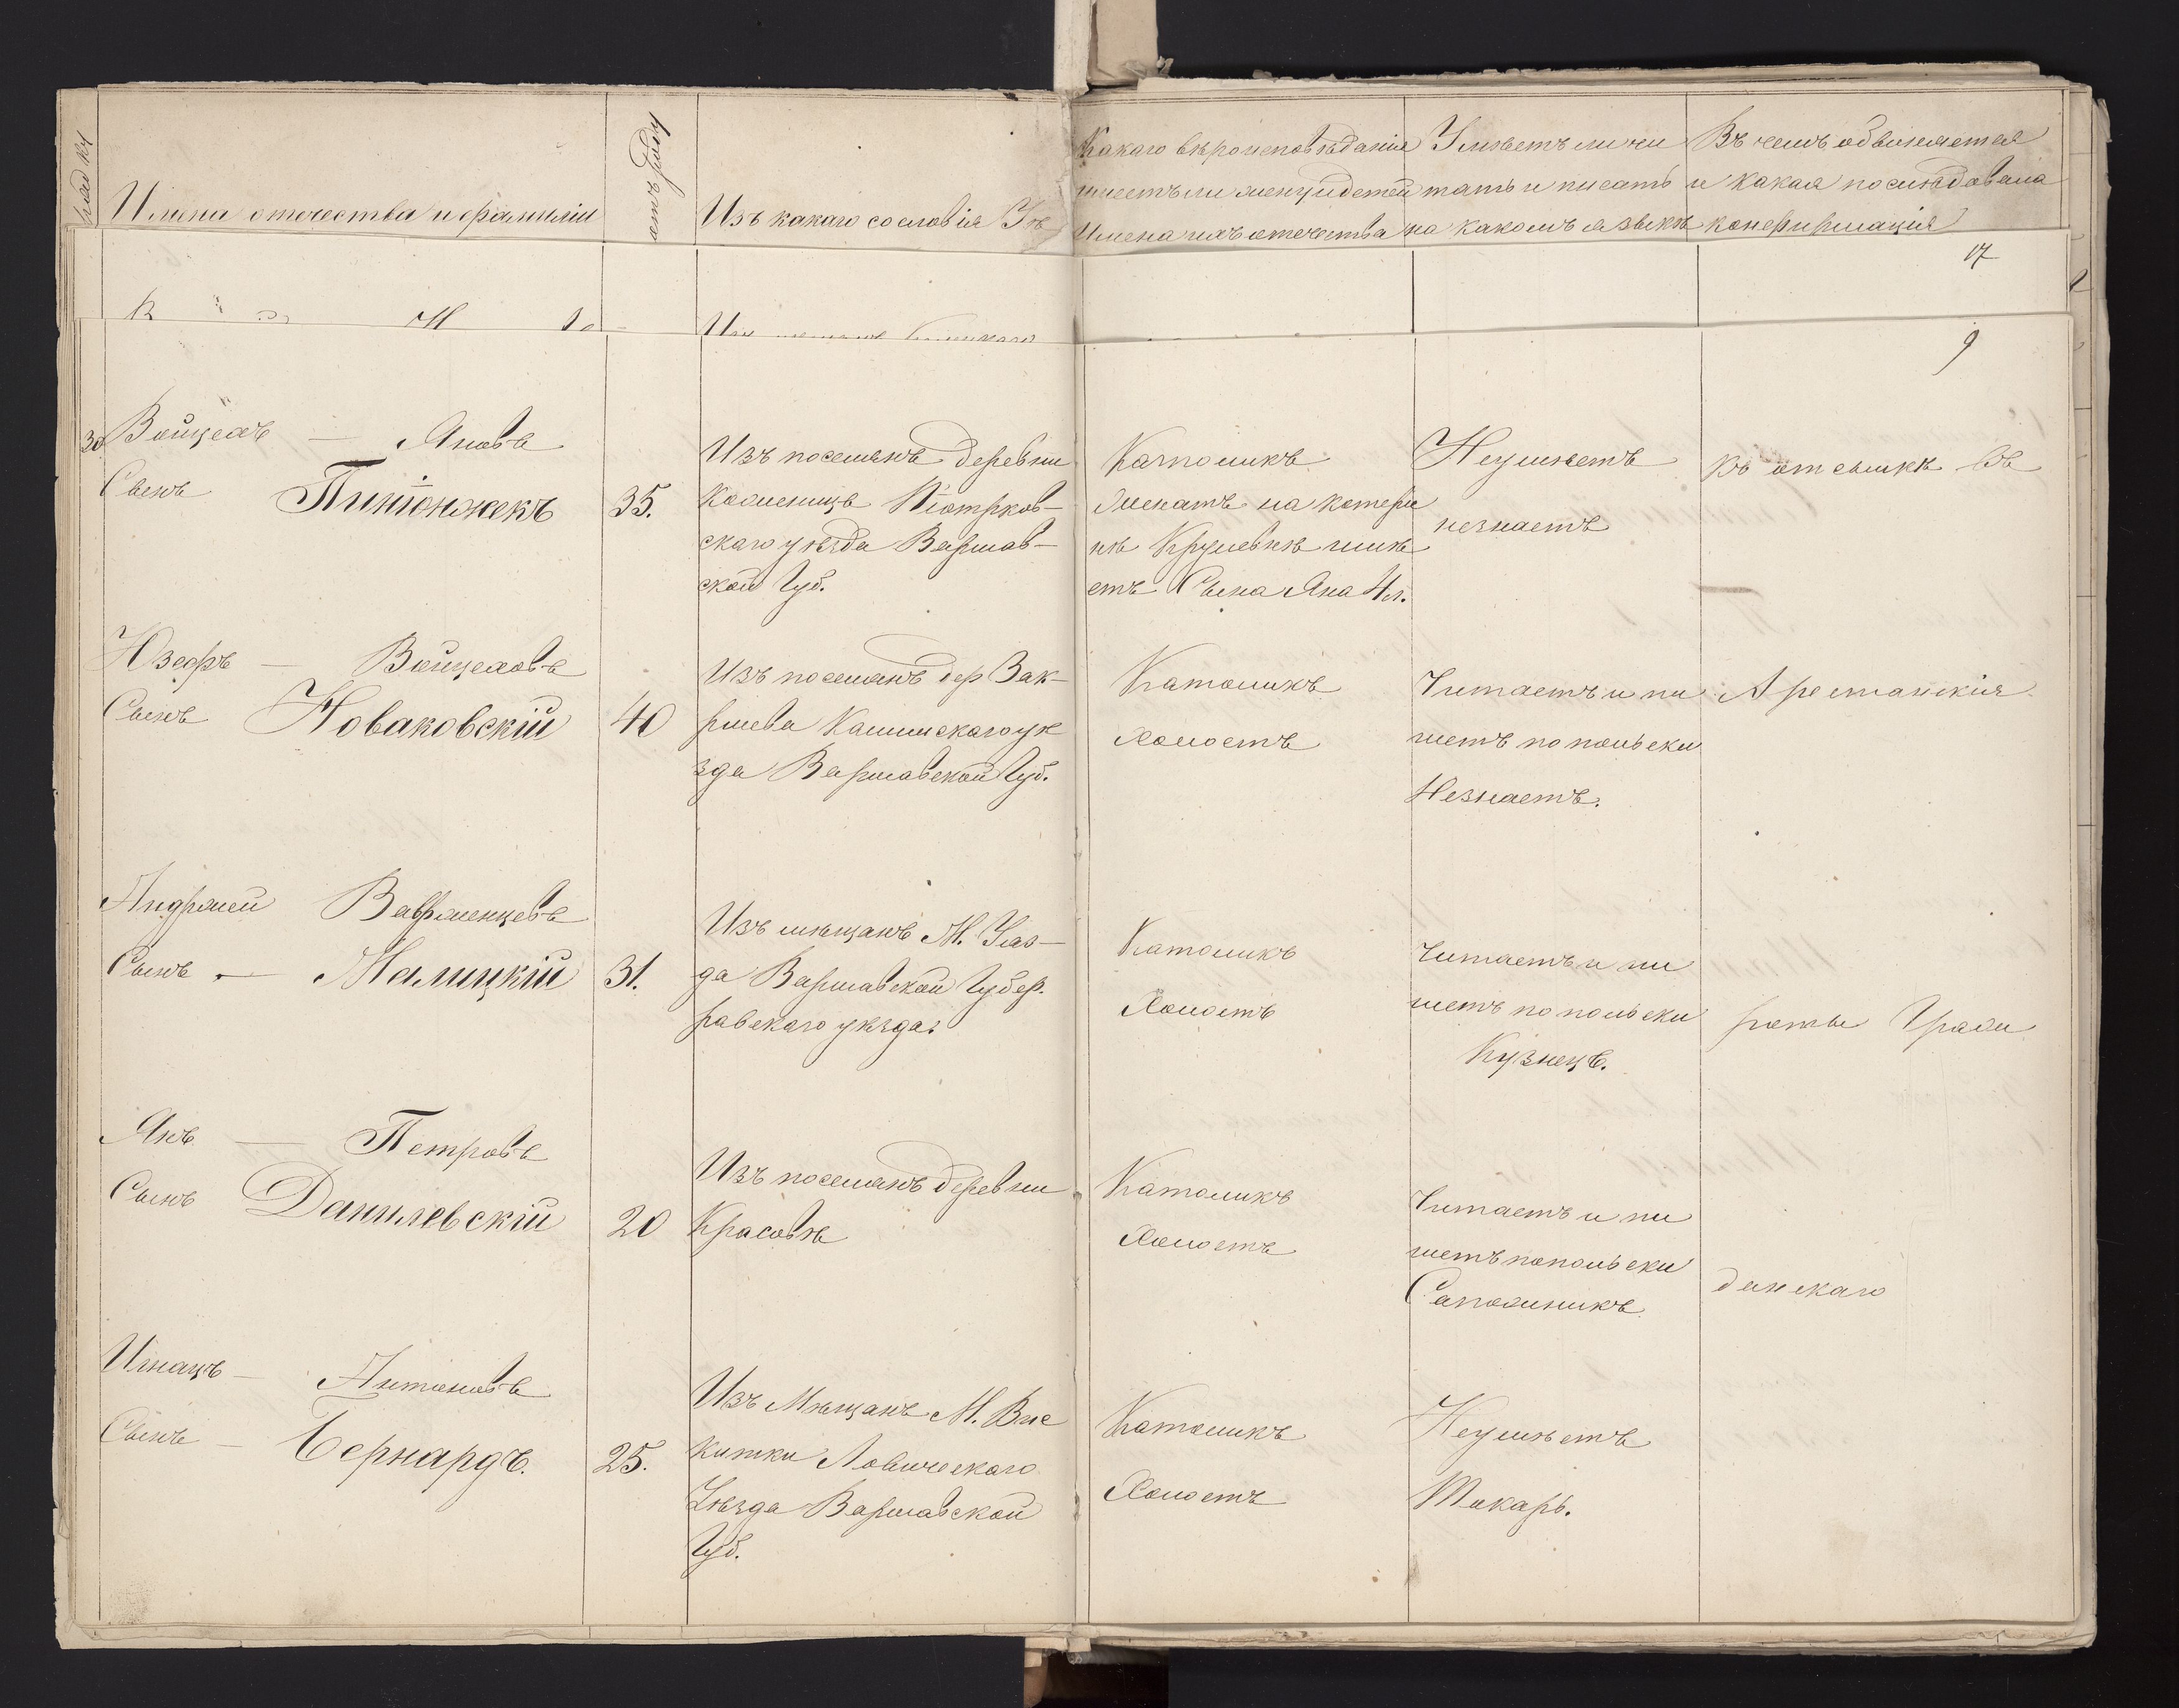 Имена отечества и фамиліи
лѣтъ роду
Изъ какаго сословія
Какаго вѣроисповѣданія
имеетъ ли жену и детей
Имена ихъ отечества
Умѣетъ ли чи
тать и писать и
на какомъ языкѣ
Въ чемъ обвиняется
какая послѣдовала
конфирмація
17
9
30 Войцехъ — Яновъ
Сынъ Пиніонжекъ
35.
Изъ поселянъ деревни
Каменицъ Піотрков-
скаго уѣзда Варшав-
ской Губ.
Католикъ
Женатъ на катери
нѣ Крулевнѣ имѣ
етъ Сына Яна 4 л.
Неумѣетъ
незнаетъ
къ отсылкѣ въ
Юзефъ — Войцеховъ
Сынъ Новаковскій
40
Изъ поселянъ дер Зак-
ршева Калишскаго уѣ
зда Варшавской Губ.
Католикъ
Холостъ
Читаетъ и пи
шетъ по польски
Незнаетъ.
Арестанскія
Андржей Вавржинцевъ
Сынъ — Малицкій
31.
Изъ мѣщанъ М. Уяз-
да Варшавской Губер.
равскаго уѣзда
Католикъ
Холостъ
Читаетъ и пи
шетъ по польски
Кузнецъ.
роты Гражи
Янъ — Петровъ
Сынъ Данилевскій
20
Изъ поселянъ деревни
Красовѣ
Католикъ
Холостъ
Читаетъ и пи
шетъ попольски
Сапожникъ
данскаго
Игнацъ — Антоновъ
Сынъ — Бернардъ.
25.
Изъ Мѣщанъ М. Вис
китки Ловичскаго
Уѣзда Варшавской
Губ.
Католикъ
Холостъ
Неумѣетъ
Токарь.